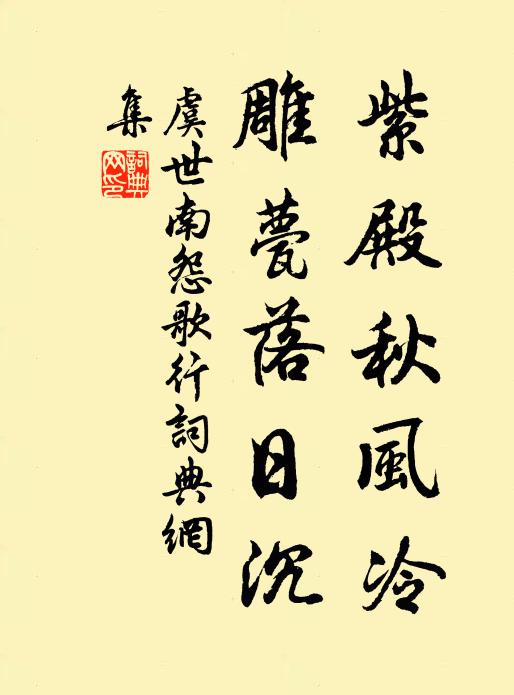 紫殿秋風冷
雕甍落日沉
虞世南怨歌行詞典網
集
詞典
网印